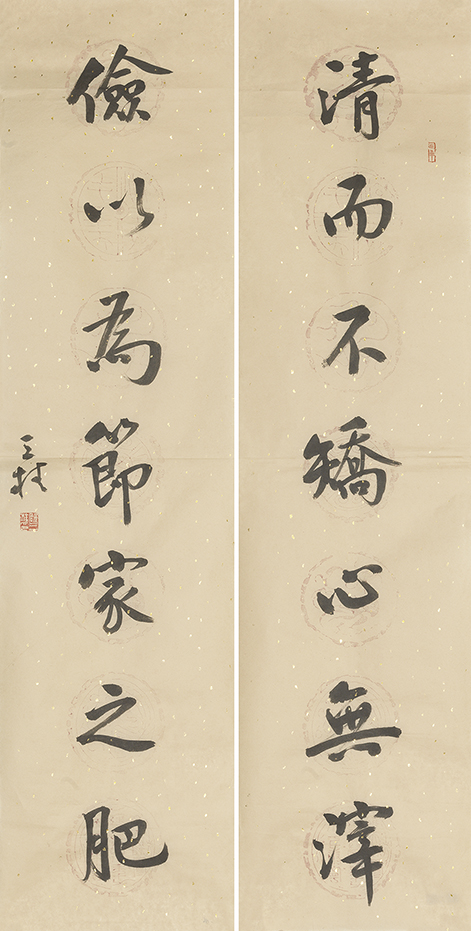 清而不矯心無滓
儉以為節家之肥